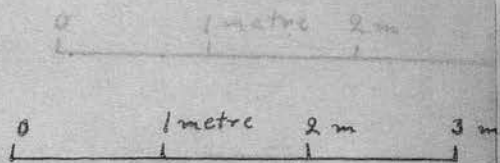 0 1 metre 2 m
0 1 metre 2 m 3 m